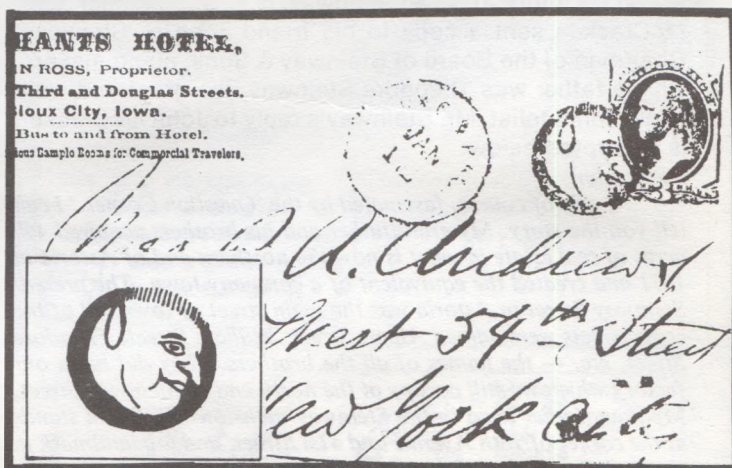 HANTS HOTEL,
N ROSS, Proprietor.
Third and Douglas Streets.
Sioux City, Iowa.
Bus to and from Hotel.
ious Sample Rooms for Commercial Travelers.
JAN
Andrews
West 54th Street
New York City